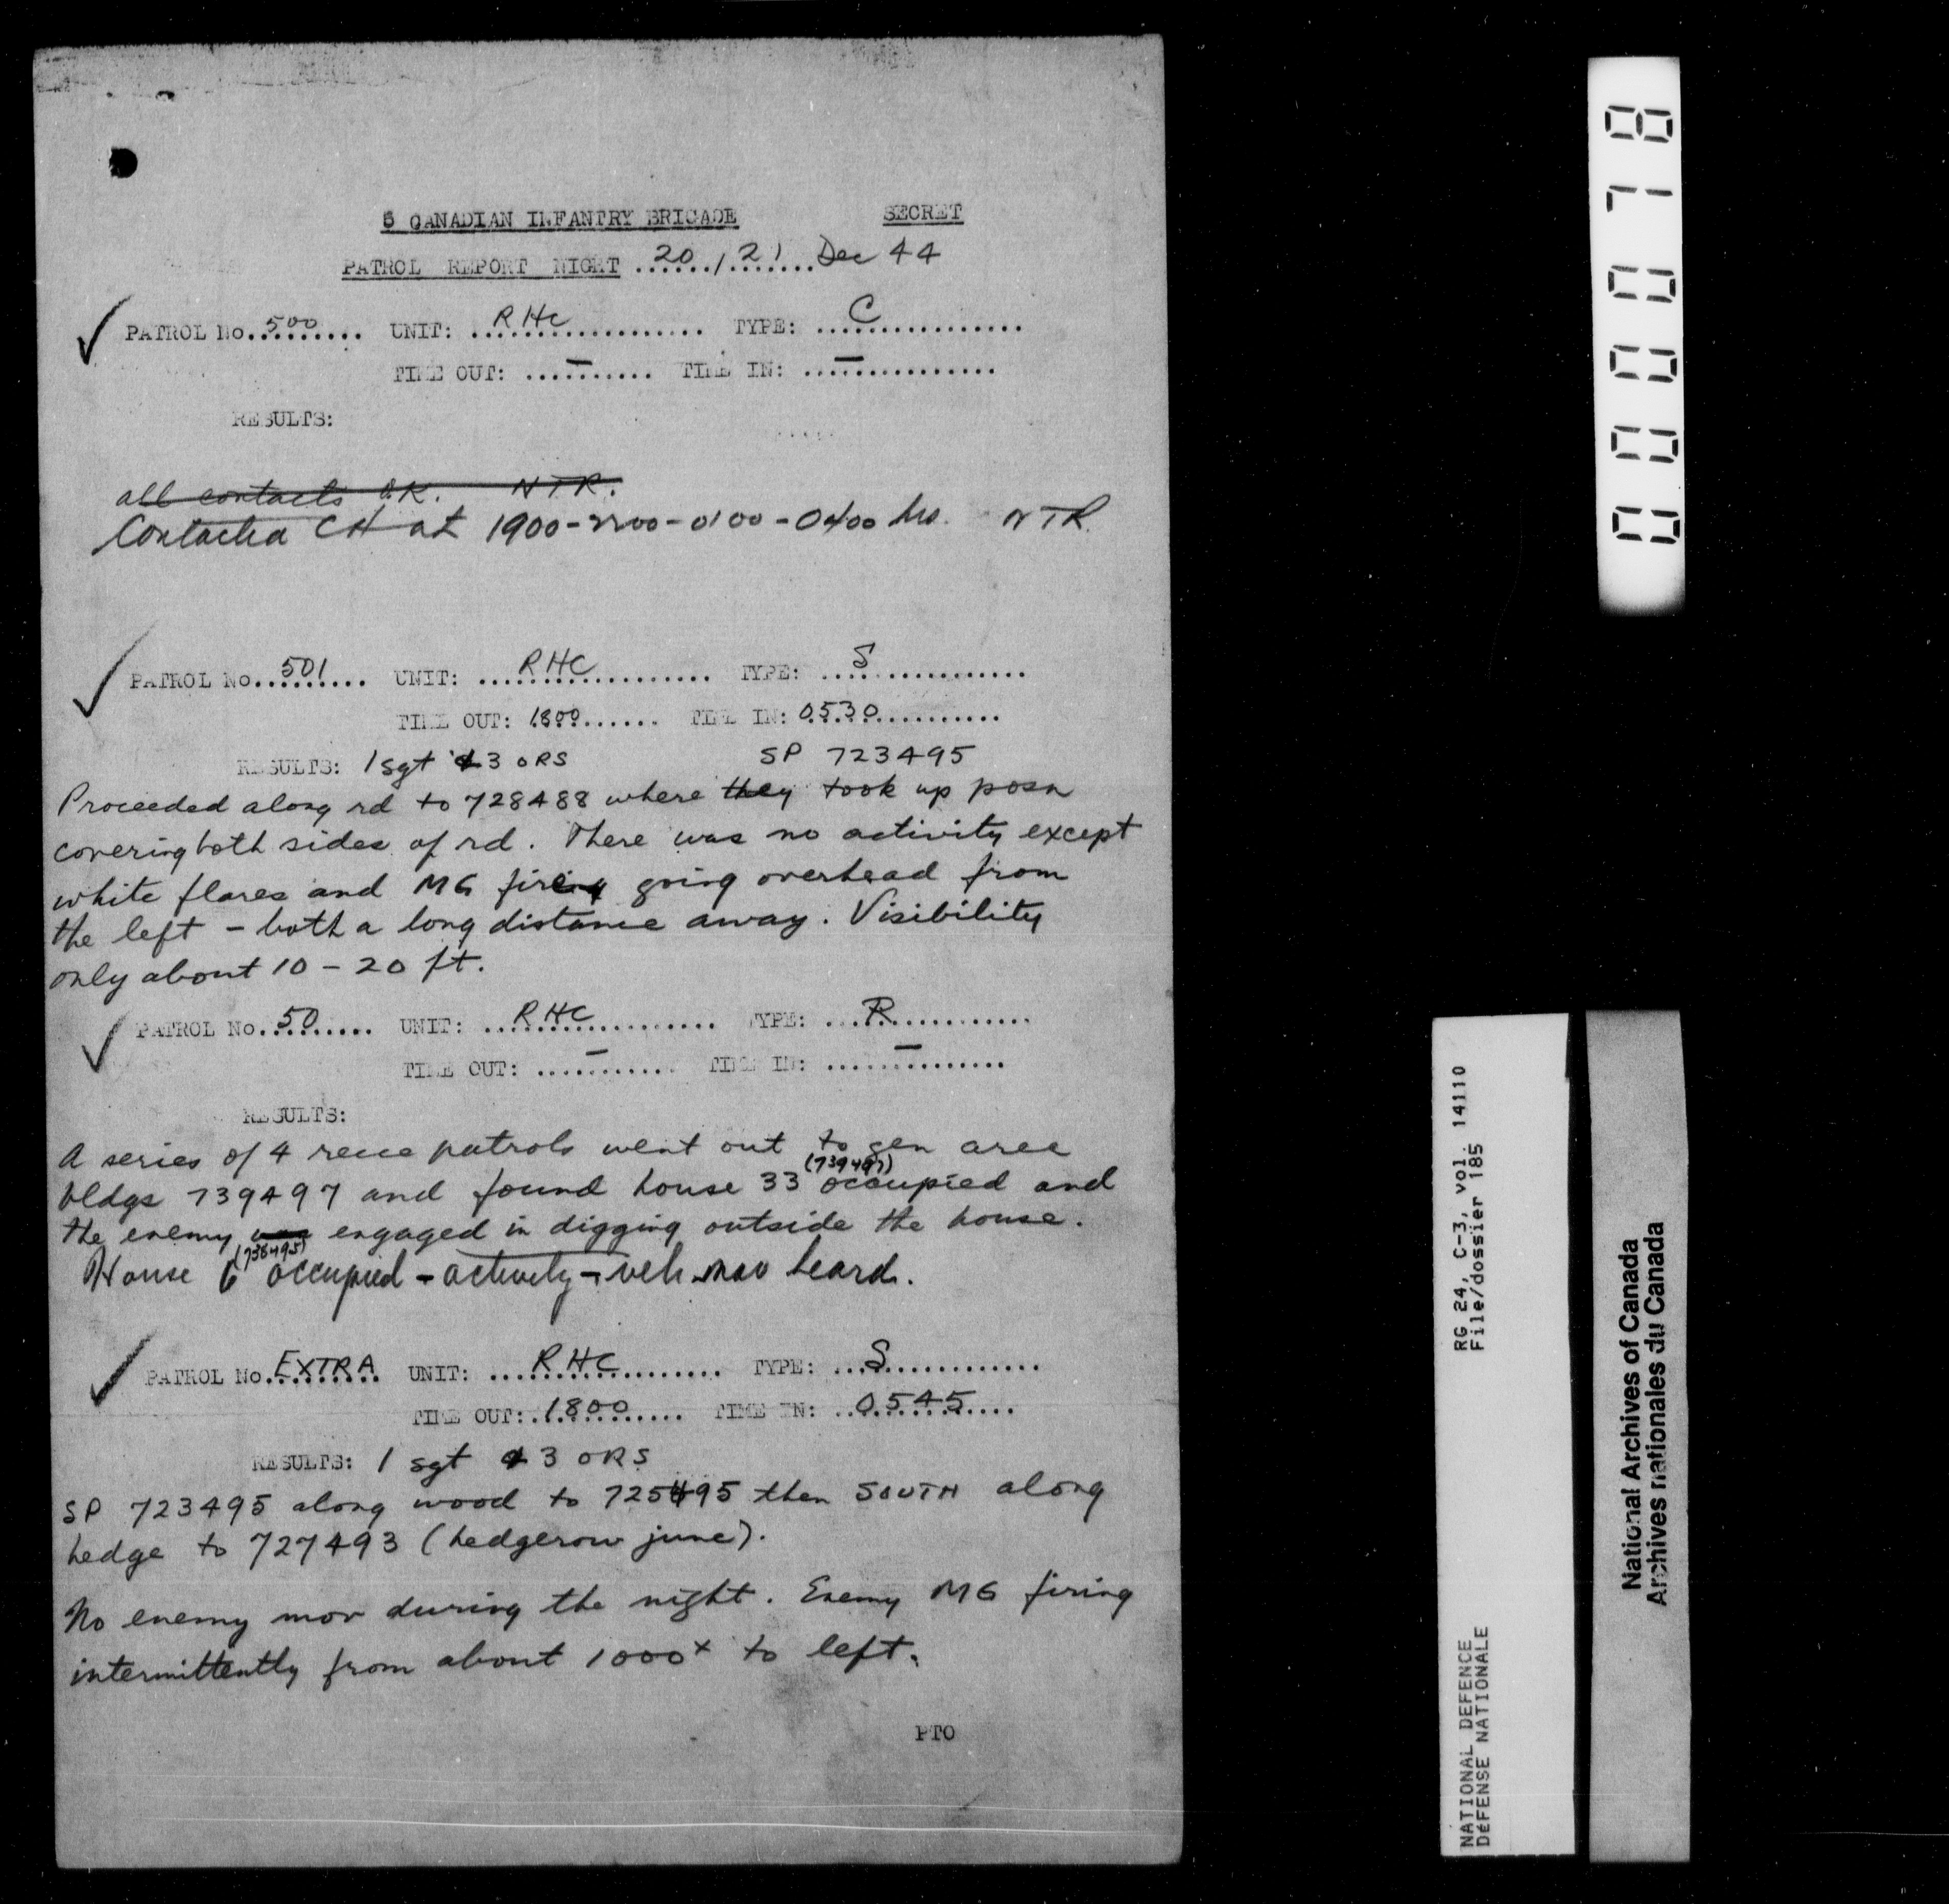 5 CANADIAN INFANTRY BRIGADE SECRET
PATROL REPORT NIGHT ...20.../...21...Dec 44
PATROL No...500... UNIT: ...RHC... TYPE: ...C...
TIME OUT: ...—... TIME IN: ...—...
RESULTS:
all contacts O.K. NTR.
Contacted CH at 1900-2200-0100-0400 hrs. NTR.
PATROL No...501... UNIT: ...RHC... TYPE: ...S...
TIME OUT: 1800... TIME IN: 0530...
RESULTS: 1 sgt & 3 ORS SP 723495
Proceeded along rd to 728488 where they took up posn
covering both sides of rd. There was no activity except
white flares and MG firing going overhead from
the left - both a long distance away. Visibility
only about 10 - 20 ft.
PATROL No...50... UNIT: ...RHC... TYPE: ...R...
TIME OUT: ...—... TIME IN: ...—...
RESULTS:
A series of 4 recce patrols went out to gen area
(739497)
bldgs 739497 and found house 33 occupied and
the enemy was engaged in digging outside the house.
(738495)
House 6 occupied - activity - veh mov heard.
PATROL No...EXTRA... UNIT: ...RHC... TYPE: ...S...
TIME OUT: ...1800... TIME IN: ...0545...
RESULTS: 1 sgt & 3 ORS
SP 723495 along wood to 725495 then SOUTH along
hedge to 727493 (hedgerow junc).
No enemy mov during the night. Enemy MG firing
intermittently from about 1000x to left.
PTO
0000078
RG 24, C-3, vol. 14110
File/dossier 185
NATIONAL DEFENCE
DÉFENSE NATIONALE
National Archives of Canada
Archives nationales du Canada